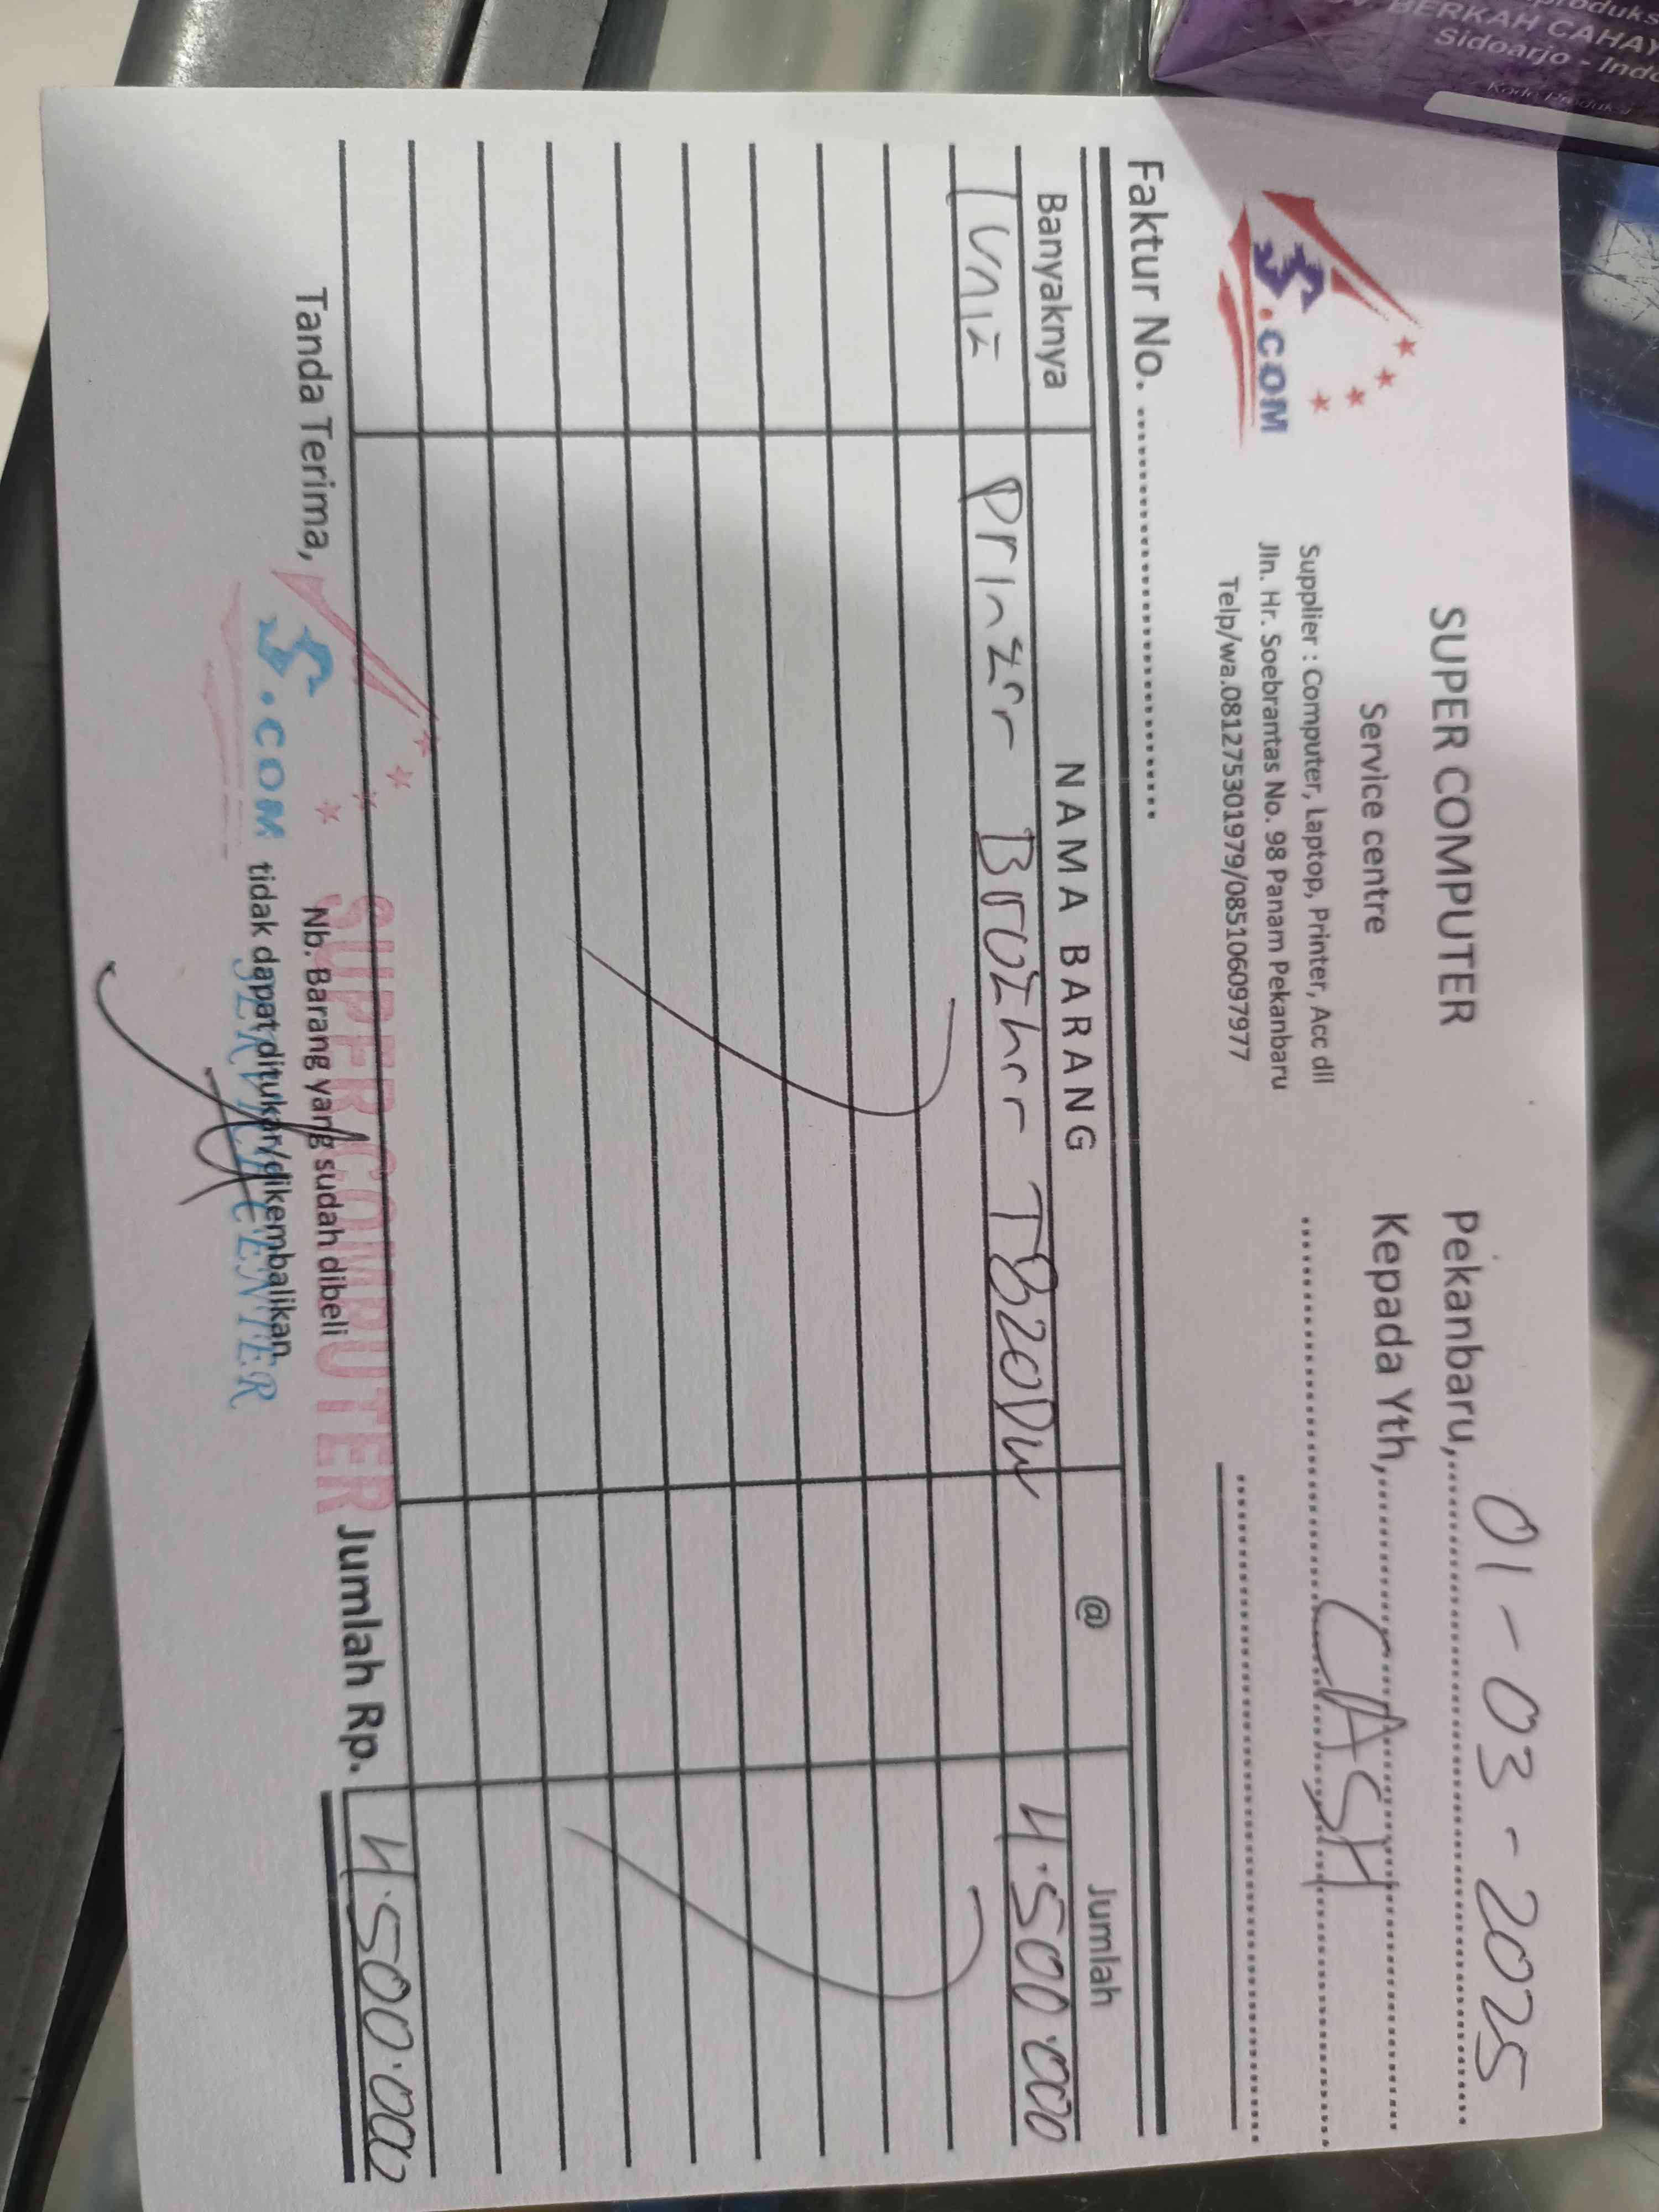 roduks
BERKAH CAHAY
Sidoarjo - Indo
Kode Produksi
S.COM
SUPER COMPUTER
Service centre
Supplier : Computer, Laptop, Printer, Acc dll
Jln. Hr. Soebrantas No. 98 Panam Pekanbaru
Telp/wa.081275301979/085106097977
Pekanbaru, 01-03-2025
Kepada Yth, CASH
Faktur No.
Banyaknya NAMA BARANG @ Jumlah
1 Unit Printer Brother T820DW 4.500.000
Jumlah Rp. 4.500.000
Tanda Terima,
S.COM
SUPER COMPUTER
SERVICE CENTER
Nb. Barang yang sudah dibeli
tidak dapat ditukar/dikembalikan